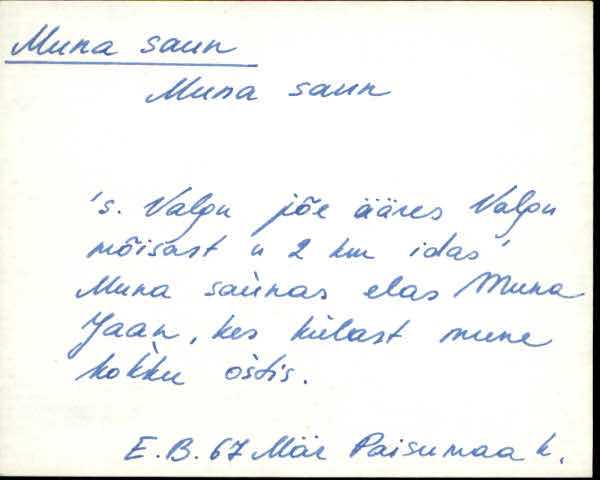 Muna saun
Muna saun
's. Valgu jõe ääres Valgu
mõisast u 2 km idas'
Muna sàunas elas Muna
Jaan, kes külast mune
kòkku òstis.
E.B. 67 Mär Paisumaa k.